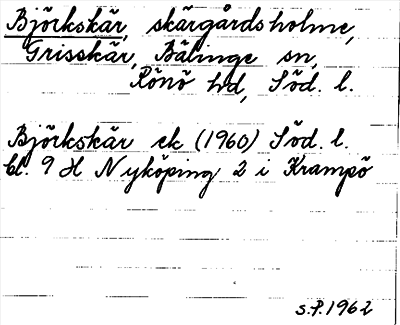 Björkskär, skärgårdsholme,
Grisskär, Bälinge sn,
Rönö hd, Söd. l.
Björkskär ek (1960) Söd. l.
bl. 9 H Nyköping 2 i Krampö
s.P.1962